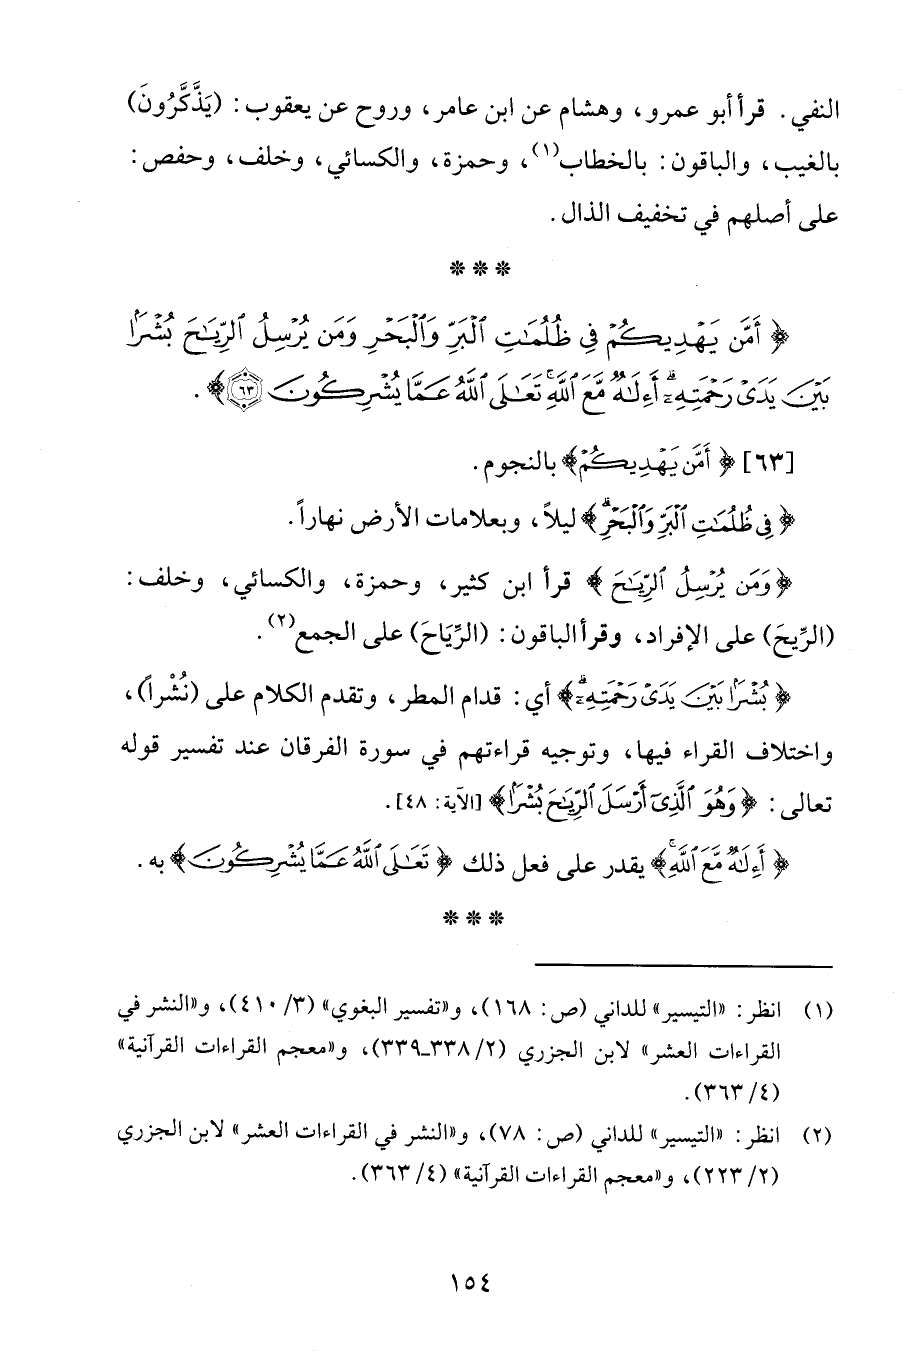 النفي. قرأ أبو عمرو، وهشام عن ابن عامر، وروح عن يعقوب: (يَذَّكَّرُونَ)
بالغيب، والباقون: بالخطاب(١)، وحمزة، والكسائي، وخلف، وحفص:
على أصلهم في تخفيف الذال.
* * *
﴿أَمَّن يَهْدِيكُمْ فِي ظُلُمَٰتِ ٱلْبَرِّ وَٱلْبَحْرِ وَمَن يُرْسِلُ ٱلرِّيَٰحَ بُشْرًۢا
بَيْنَ يَدَىْ رَحْمَتِهِۦٓ ۗ أَءِلَٰهٌ مَّعَ ٱللَّهِ ۚ تَعَٰلَى ٱللَّهُ عَمَّا يُشْرِكُونَ ٦٣﴾.
[٦٣] ﴿أَمَّن يَهْدِيكُمْ﴾ بالنجوم.
﴿فِي ظُلُمَٰتِ ٱلْبَرِّ وَٱلْبَحْرِ ۗ﴾ ليلاً، وبعلامات الأرض نهاراً.
﴿وَمَن يُرْسِلُ ٱلرِّيَٰحَ﴾ قرأ ابن كثير، وحمزة، والكسائي، وخلف:
(الرِّيحَ) على الإفراد، وقرأ الباقون: (الرِّيَاحَ) على الجمع(٢).
﴿بُشْرًۢا بَيْنَ يَدَىْ رَحْمَتِهِۦٓ ۗ﴾ أي: قدام المطر، وتقدم الكلام على (نُشْراً)،
واختلاف القراء فيها، وتوجيه قراءتهم في سورة الفرقان عند تفسير قوله
تعالى: ﴿وَهُوَ ٱلَّذِىٓ أَرْسَلَ ٱلرِّيَٰحَ بُشْرًۢا﴾ [الآية: ٤٨].
﴿أَءِلَٰهٌ مَّعَ ٱللَّهِ ۚ﴾ يقدر على فعل ذلك ﴿تَعَٰلَى ٱللَّهُ عَمَّا يُشْرِكُونَ﴾ به.
* * *
(١) انظر: «التيسير» للداني (ص: ١٦٨)، و«تفسير البغوي» (٣/ ٤١٠)، و«النشر في
القراءات العشر» لابن الجزري (٢/ ٣٣٨ـ٣٣٩)، و«معجم القراءات القرآنية»
(٤/ ٣٦٣).
(٢) انظر: «التيسير» للداني (ص: ٧٨)، و«النشر في القراءات العشر» لابن الجزري
(٢/ ٢٢٣)، و«معجم القراءات القرآنية» (٤/ ٣٦٣).
١٥٤